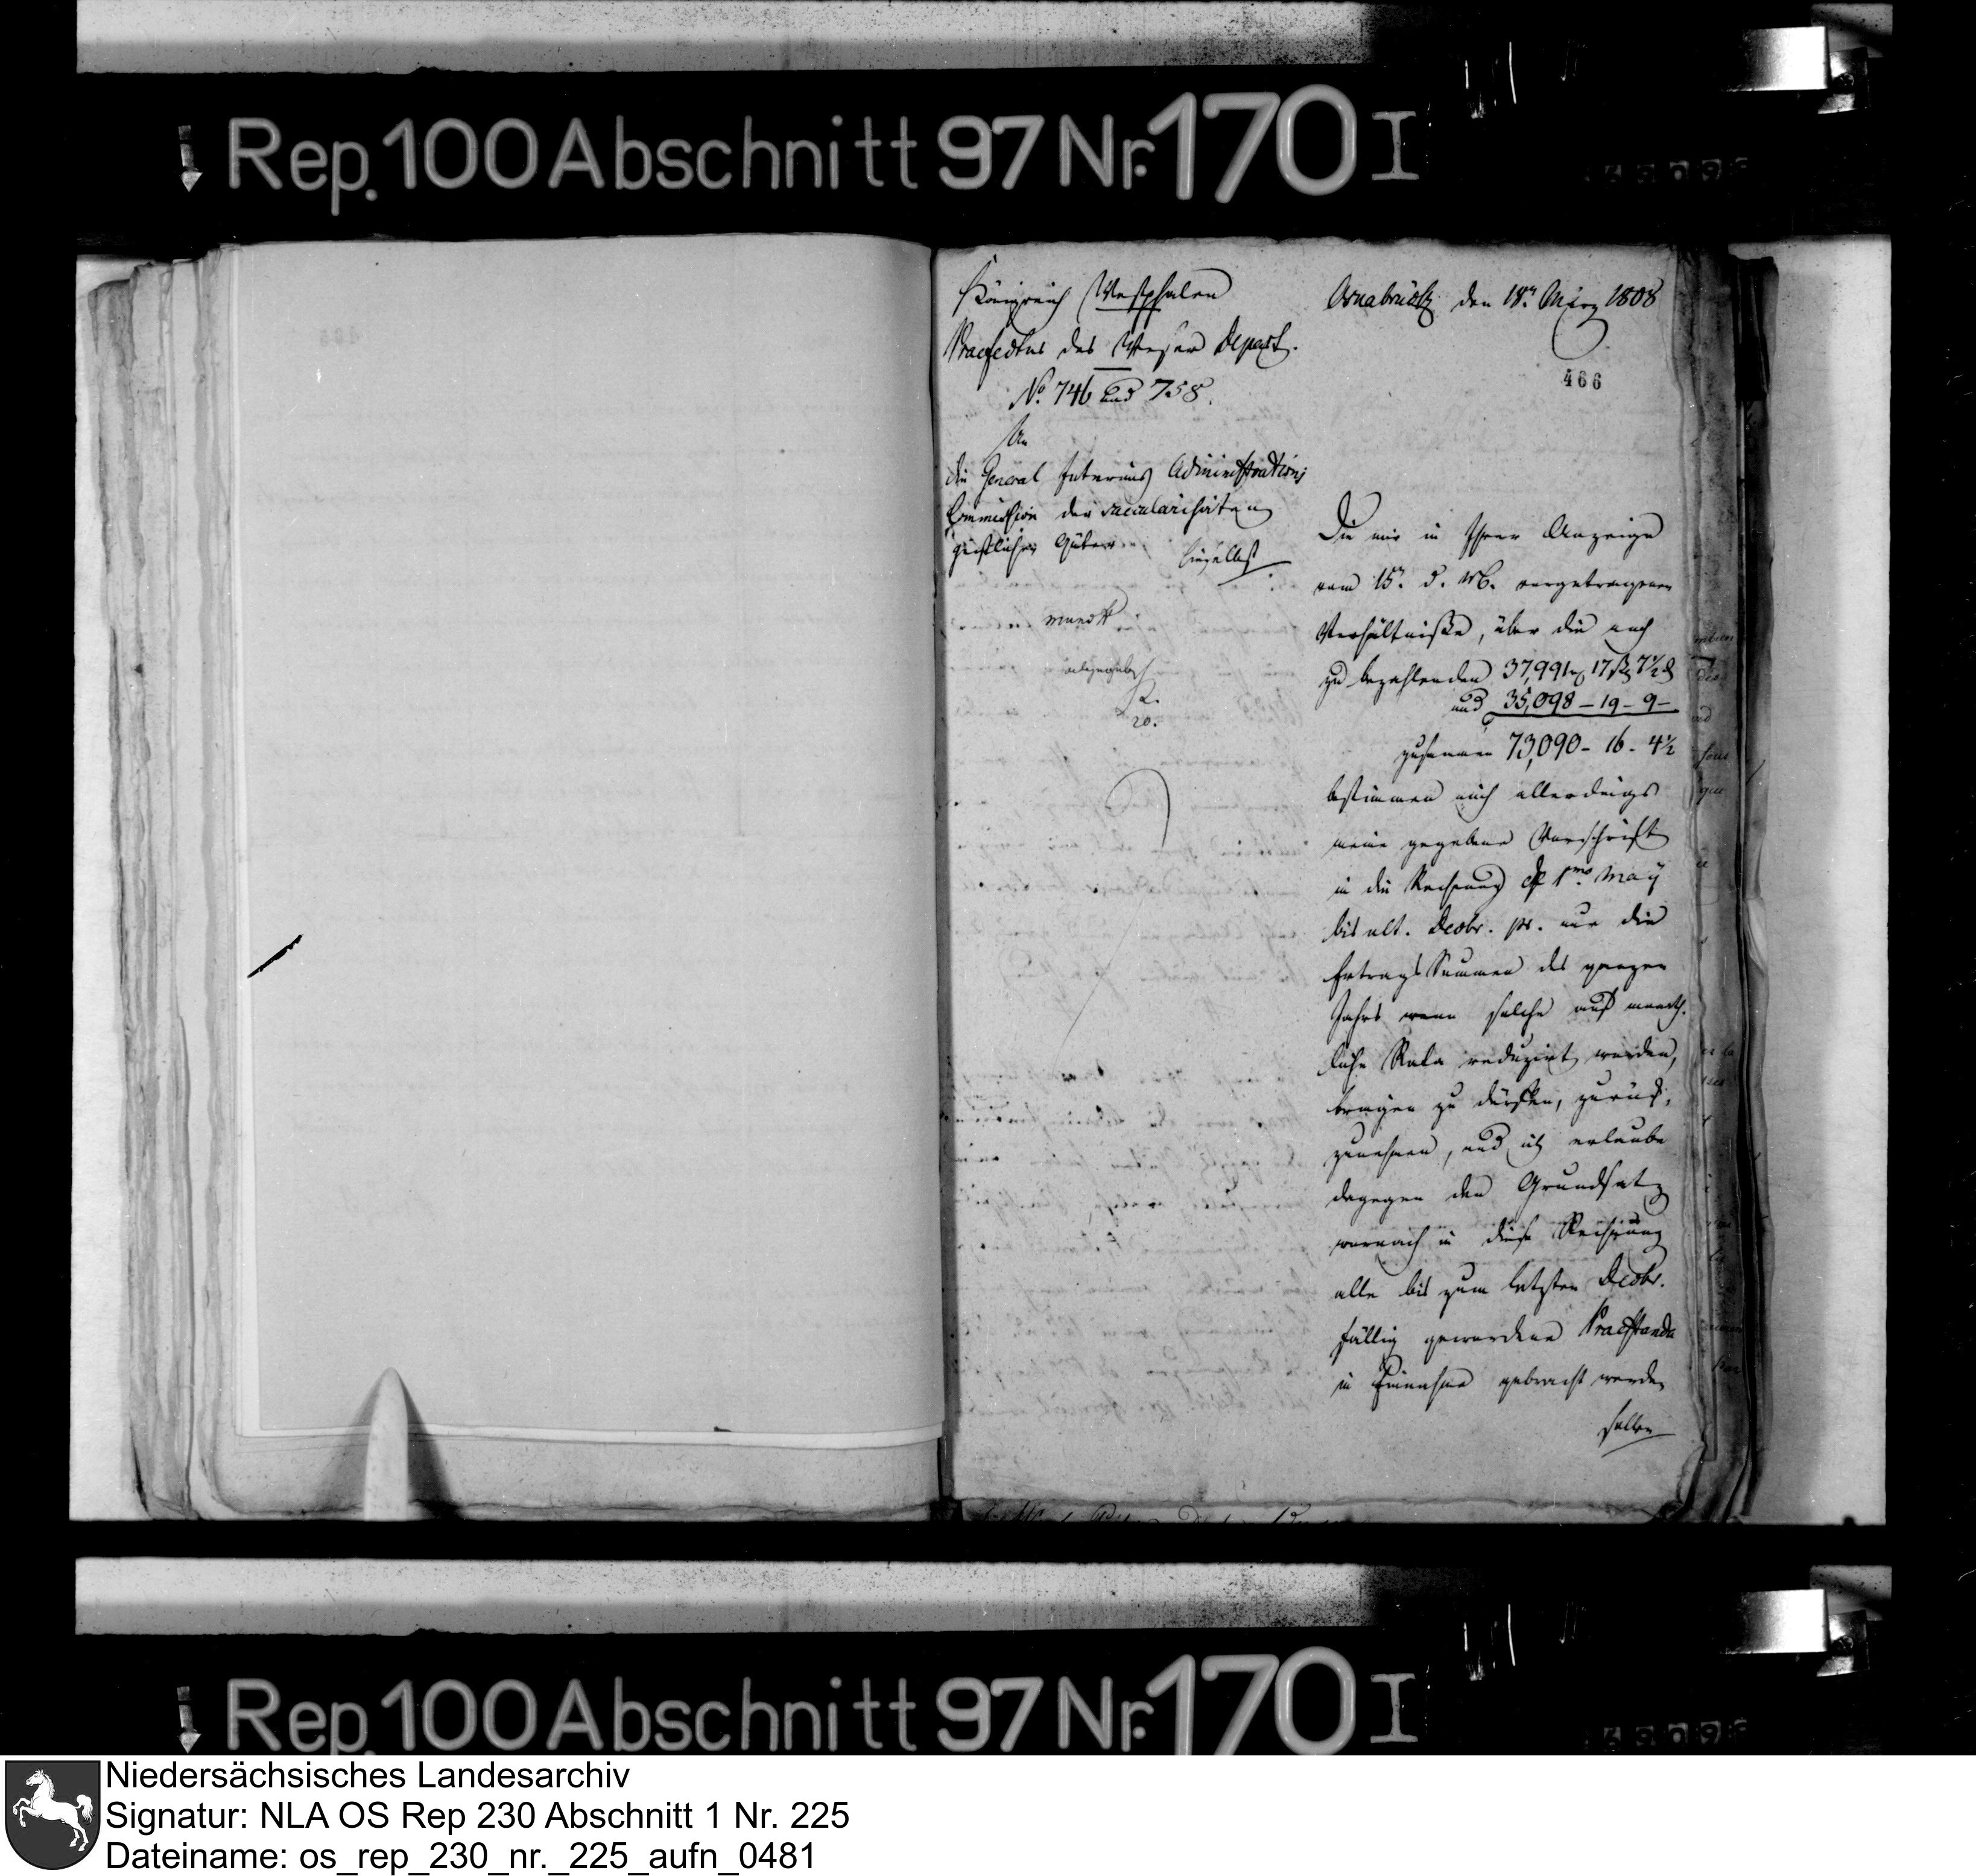 Rep. 100 Abschnitt 97 Nr. 170 I
Königreich Westphalen
Praefectur des Weser Depart.
No. 746 und 758.
An
die General Interims Administrations
Commission der saecularisirten
geistlichen Güter
hieselbst
Osnabrück den 18n März 1808
466
mundt
abgegeben
20.
Die mir in Ihrer Anzeige
vom 15n d. M. vorgetragenen
Verhältniße, über die noch
zu bezahlenden 37,991 17 ß 7½ d
und 35,098 – 19 – 9 –
zusammen 73,090 – 16 – 4½
bestimmen mich allerdings
meine gegebene Vorschrift
in die Rechnung 1mo May
bis ult. Decbr. pr. nur die
Ertrags Summen des ganzen
Jahrs wenn solche auf monath-
liche Rata reduzirt worden,
bringen zu dürfen, zurück-
zunehmen, und ich erlaube
dagegen den Grundsatz
wornach in diese Rechnung
alle bis zum letzten Decbr.
fällig gewordene Praestanda
in Einnahme gebracht werden
sollen
Rep. 100 Abschnitt 97 Nr. 170 I
Niedersächsisches Landesarchiv
Signatur: NLA OS Rep 230 Abschnitt 1 Nr. 225
Dateiname: os_rep_230_nr._225_aufn_0481